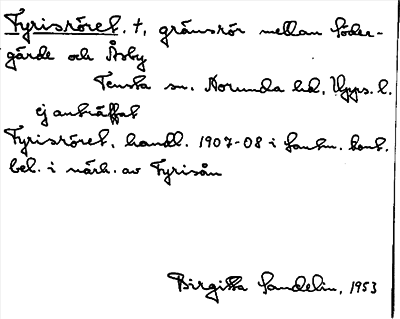 Fyrisröret. †, gränsrör mellan Söder-
gärde och Åsby
Tensta sn. Norunda hd, Upps. l.
ej anträffat
Fyrisröret, handl. 1907-08 i Lantm. kont.
bel. i närh. av Fyrisån
Birgitta Sandelin, 1953